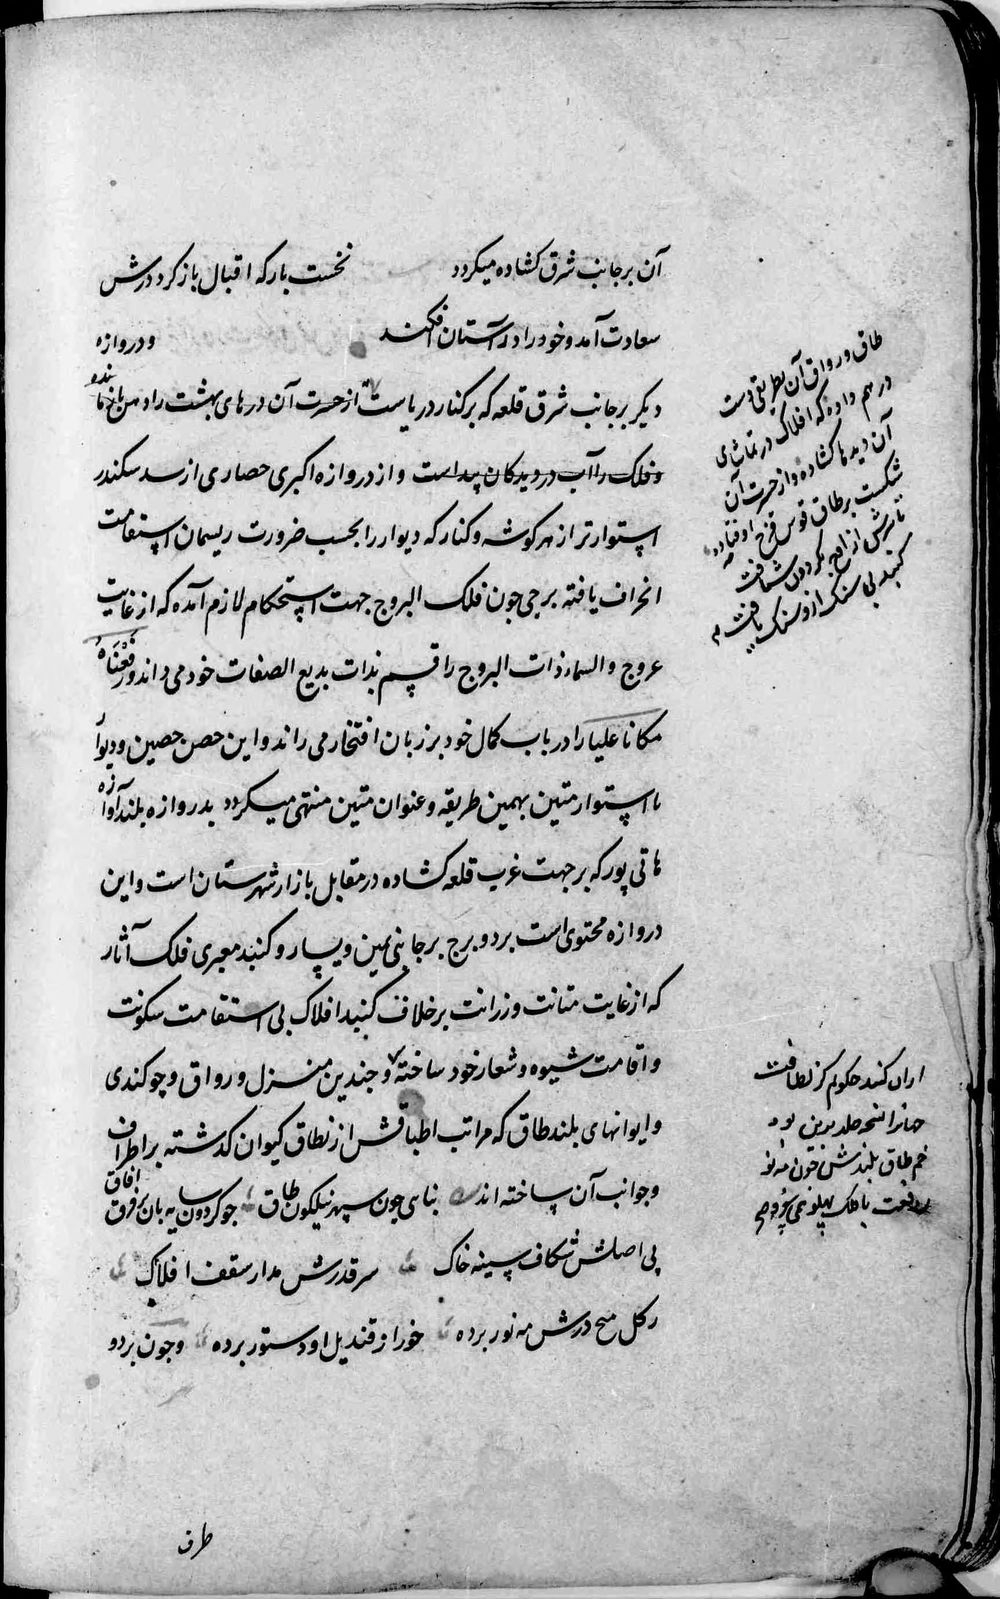 آن بر جانب شرق کشاده میکردد نخست بار که اقبال باز کرد درش
سعادت آمد و خود را در آستان افکند و دروازه
دیکر بر جانب شرق قلعه که بر کنار دریاست از حسرت آن درهای بهشت را دهن باخ
و فلک را آب در دیدکان پیداست و از دروازه اکبری حصاری از سد سکندر
استوارتر از هر کوشه و کنار که دیوار را بحسب ضرورت ریسمان استقامت
انحراف یافته برجی چون فلک البروج جهت استحکام لازم آمده که از غایت
عروج والسماء ذات البروج را قسم بذات بدیع الصفات خود می داند و رَفَعْنَاهُ
مکانا علیا را در باب کمال خود بر زبان افتخار می راند و این حصن حصین و دیوار
استوار متین بهمین طریقه و عنوان متین منتهی میکردد بدروازه بلند آوازه
هاتی پور که بر جهت غرب قلعه کشاده در مقابل بازار شهرستان است و این
دروازه محتوی است بر دو برج بر جانبی یمین و یسار و کنبد معبری فلک آثار
که از غایت متانت و رزانت بر خلاف کنبد افلاک بی استقامت سکونت
و اقامت شیوه و شعار خود ساخته و چندین منزل و رواق و چوکندی
و ایوانهای بلند طاق که مراتب اطباقش از نطاق کیوان کذشته بر اطراف
و جوانب آن ساخته اند بناهی چون سپهر نیلکون طاق چو کردون سایه بان فرق آفاق
پی اصلش شکاف سینه خاک سر قدرش مدار سقف افلاک
ز کل میخ درش مه نور برده خور از قندیل او دستور برده و چون بر دو
طرف
طاق و رواق آن بطریقی دست
در هم داده که افلاک در تماشای
آن دیدها کشاده و از حسرت آن
شکست بر طاق قوس قزح افتاده
تا سرش از اوج بکردون شتافت
کنبد بی سنک ازو سنک یافت
ازان کنبد چکویم کز لطافت
خم طاق بلندش چون مه نو